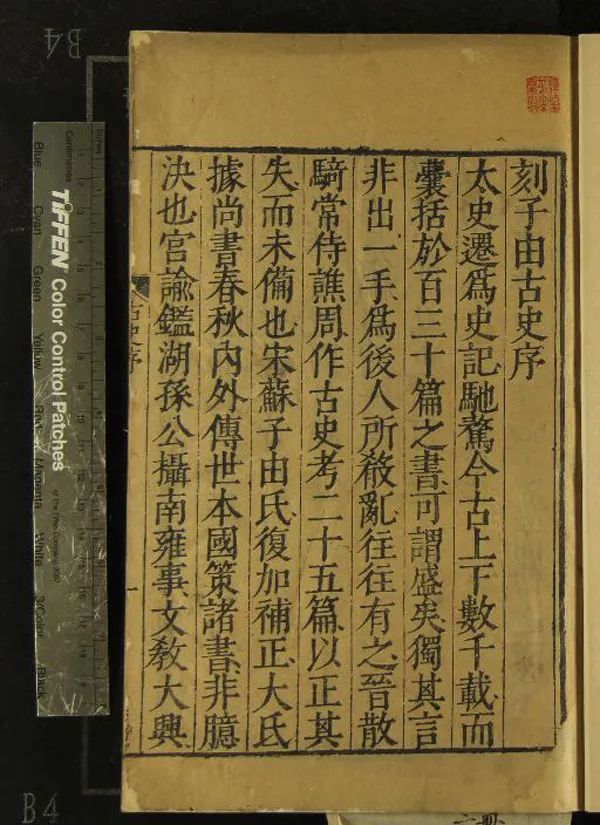 刻子由古史序
太史遷爲史記馳騖今古上下數千載而
囊括於百三十篇之書可謂盛矣獨其言
非出一手爲後人所殽亂往往有之晉散
騎常侍譙周作古史考二十五篇以正其
失而未備也宋蘇子由氏復加補正大氐
據尚書春秋內外傳世本國策諸書非臆
決也宮諭鑑湖孫公攝南雍事文敎大興
古史序
一
B4
B4
TIFFEN Color Control Patches
Centimetres
Inches
Blue
Cyan
Green
Yellow
Red
Magenta
White
3/Color
Black